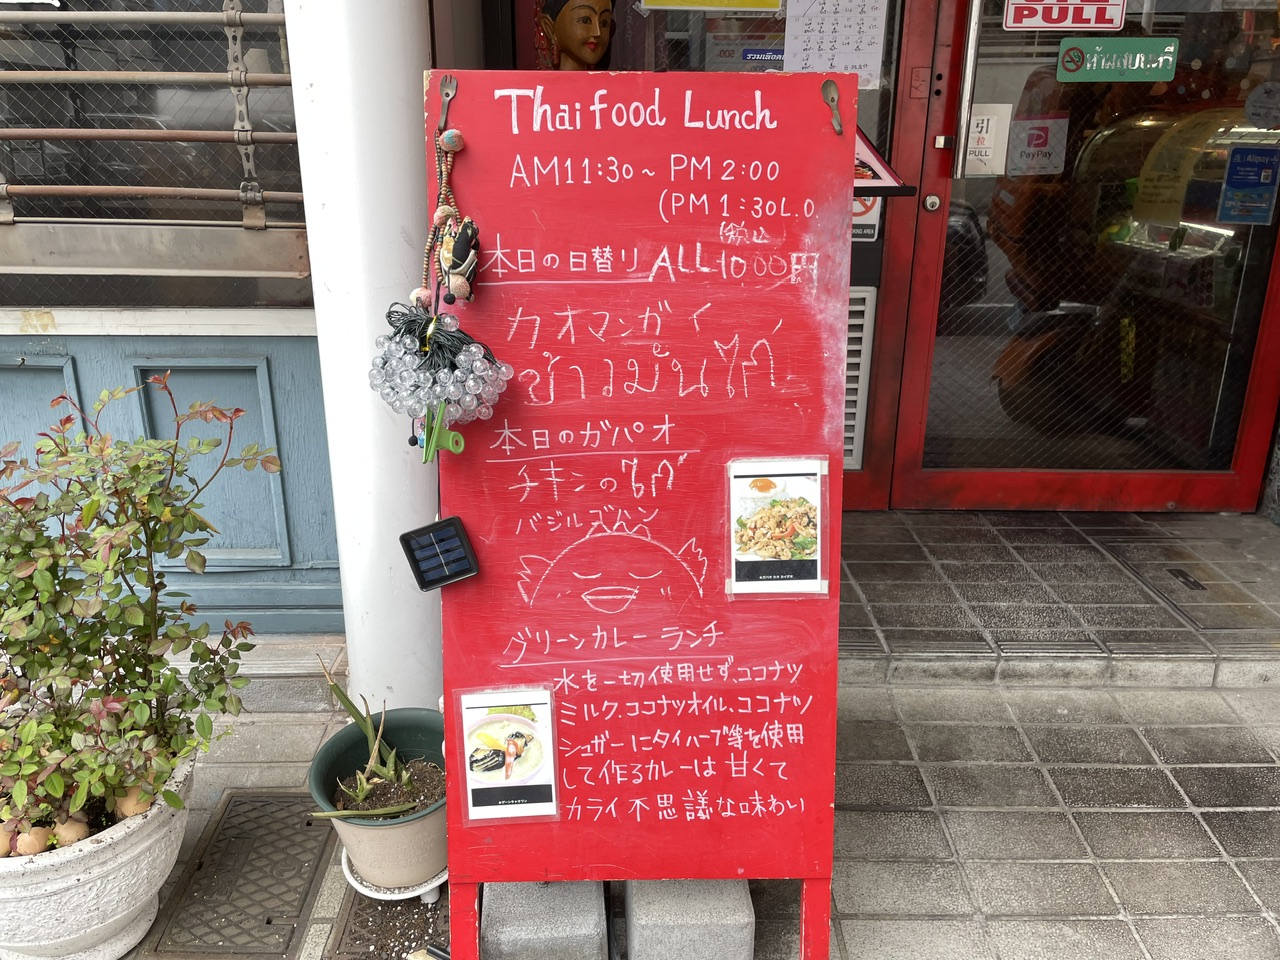 Thai food Lunch
AM11:30~ PM2:00
(PM 1:30L.O.
(税込
本日の日替り ALL 1000円
カオマンガイ
ข้าวมันไก่
本日のガパオ
チキンのไก่
バジルゴハン
グリーンカレーランチ
水を一切使用せず、ココナツ
ミルク、ココナツオイル、ココナツ
シュガーにタイハーブ等を使用
して作るカレーは甘くて
カライ不思議な味わい
PULL
ห้ามสูบบุหรี่
引
PULL
PayPay
Alipay